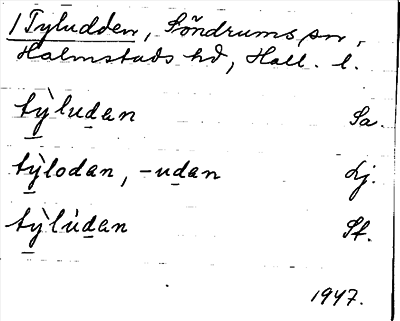 1 Tyludden, Söndrums sn,
Halmstads hd, Hall. l.
tỳludan Sa.
tỳlodan, -udan Lj.
tỳlùdan St.
1947.